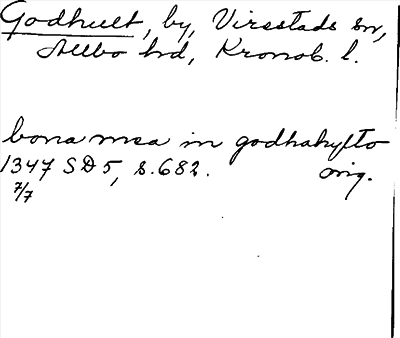 Godhult, by, Virestads sn,
Allbo hd, Kronob. l.
bona mea in godhahylto
1347 SD 5, s. 682. orig.
7/7